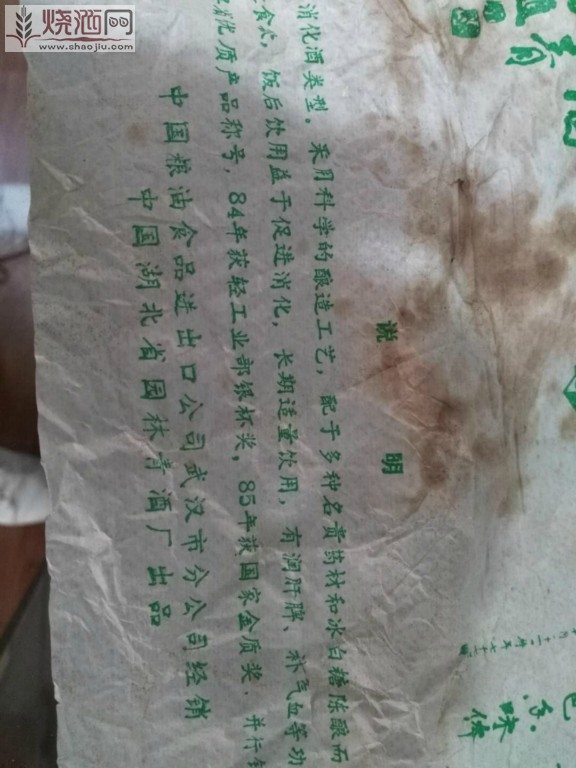 烧酒网
www.shaojiu.com
说 明
消化酒类型。采用科学的酿造工艺，配于多种名贵药材和冰白糖陈酿而
饭后饮用益于促进消化，长期适量饮用，有润肝脾、补气血等功
优质产品称号，84年获轻工业部银杯奖，85年获国家金质奖，并行销
中国粮油食品进出口公司武汉市分公司经销
中国湖北省园林青酒厂出品
味